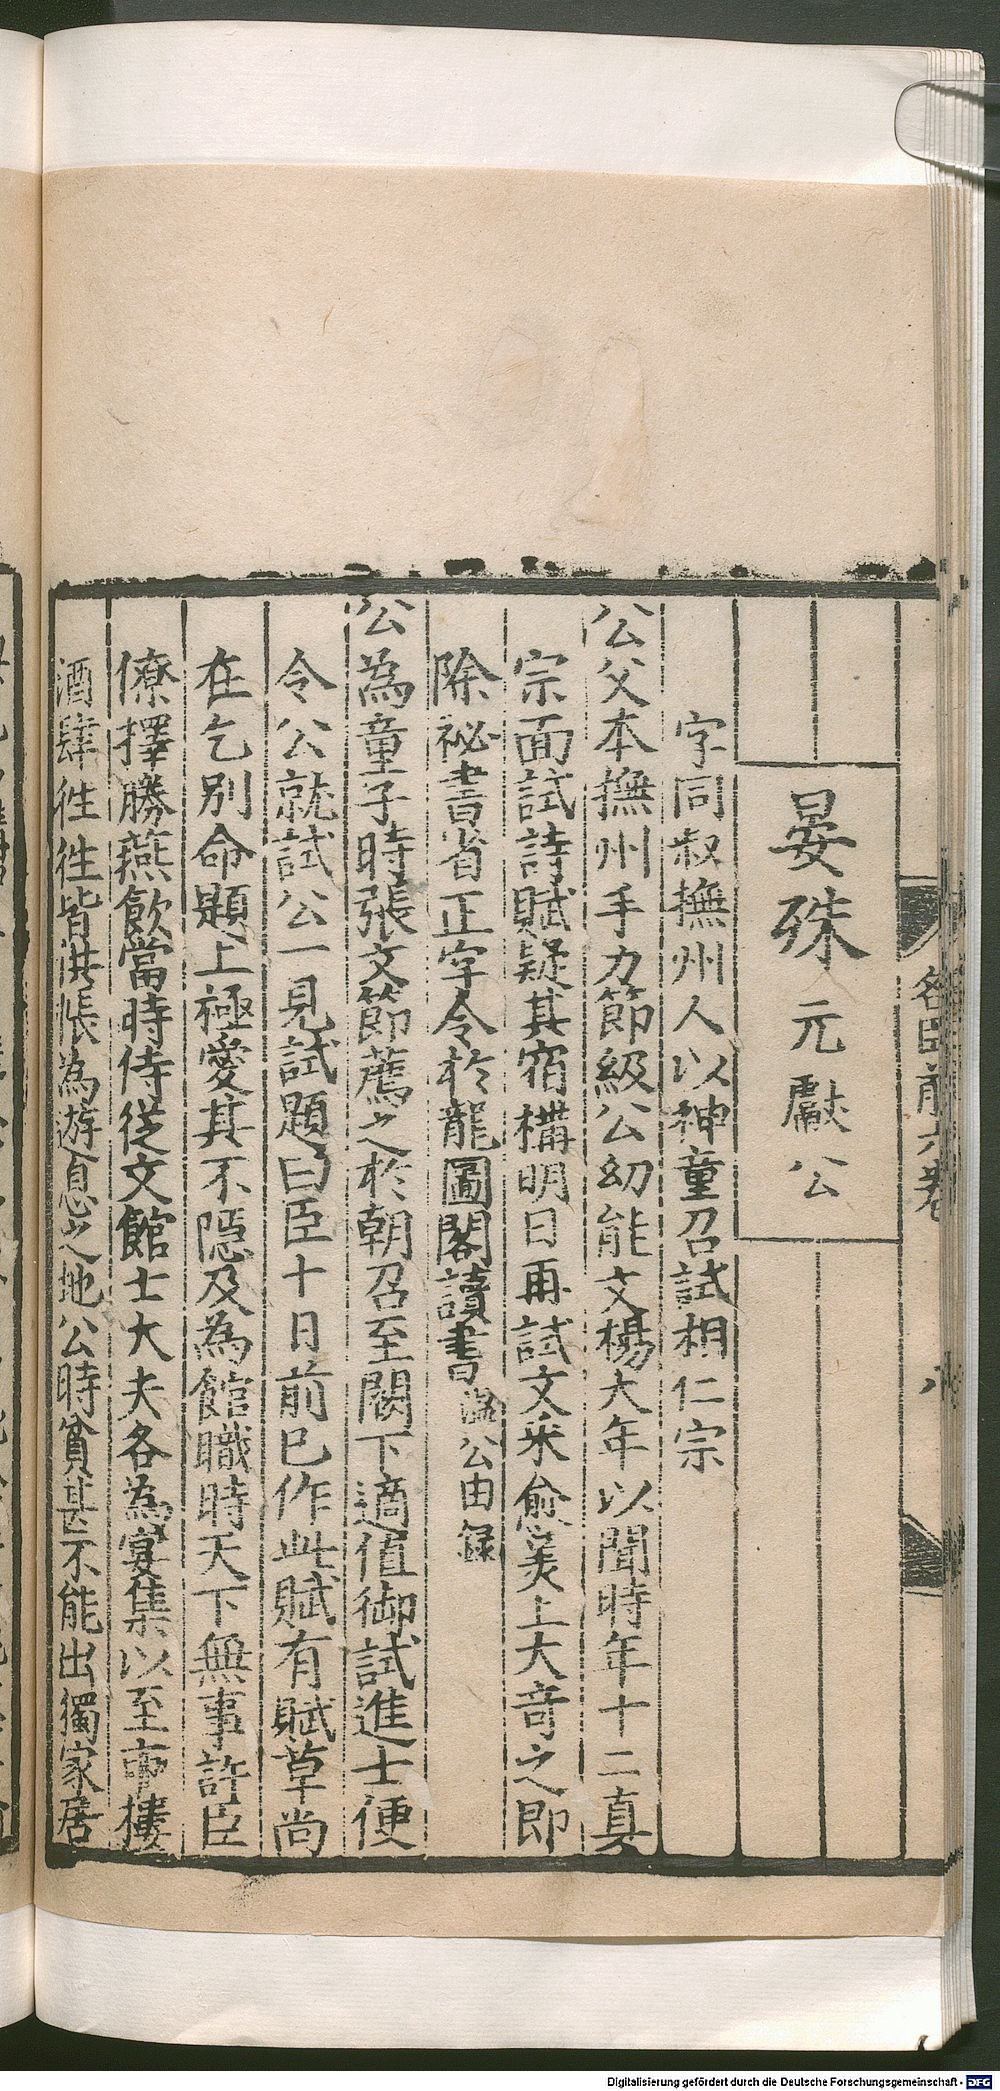 名臣前六卷
八
晏殊 元獻公
字同叔撫州人以神童召試相仁宗
公父本撫州手力節級公幼能文楊大年以聞時年十二真
宗面試詩賦疑其宿構明日再試文采愈美上大奇之即
除祕書省正字令於龍圖閣讀書溫公日録
公為童子時張文節薦之於朝召至闕下適值御試進士便
令公就試公一見試題曰臣十日前已作此賦有賦草尚
在乞別命題上極愛其不隱及為館職時天下無事許臣
僚擇勝燕飲當時侍從文館士大夫各為宴集以至市樓
酒肆徃徃皆洪帳為遊息之地公時貧甚不能出獨家居
Digitalisierung gefördert durch die Deutsche Forschungsgemeinschaft - DFG